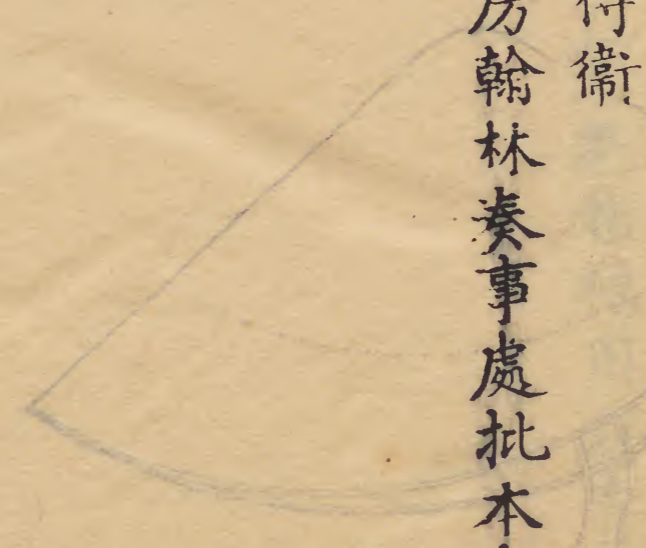 侍衞
房翰林奏事處批本